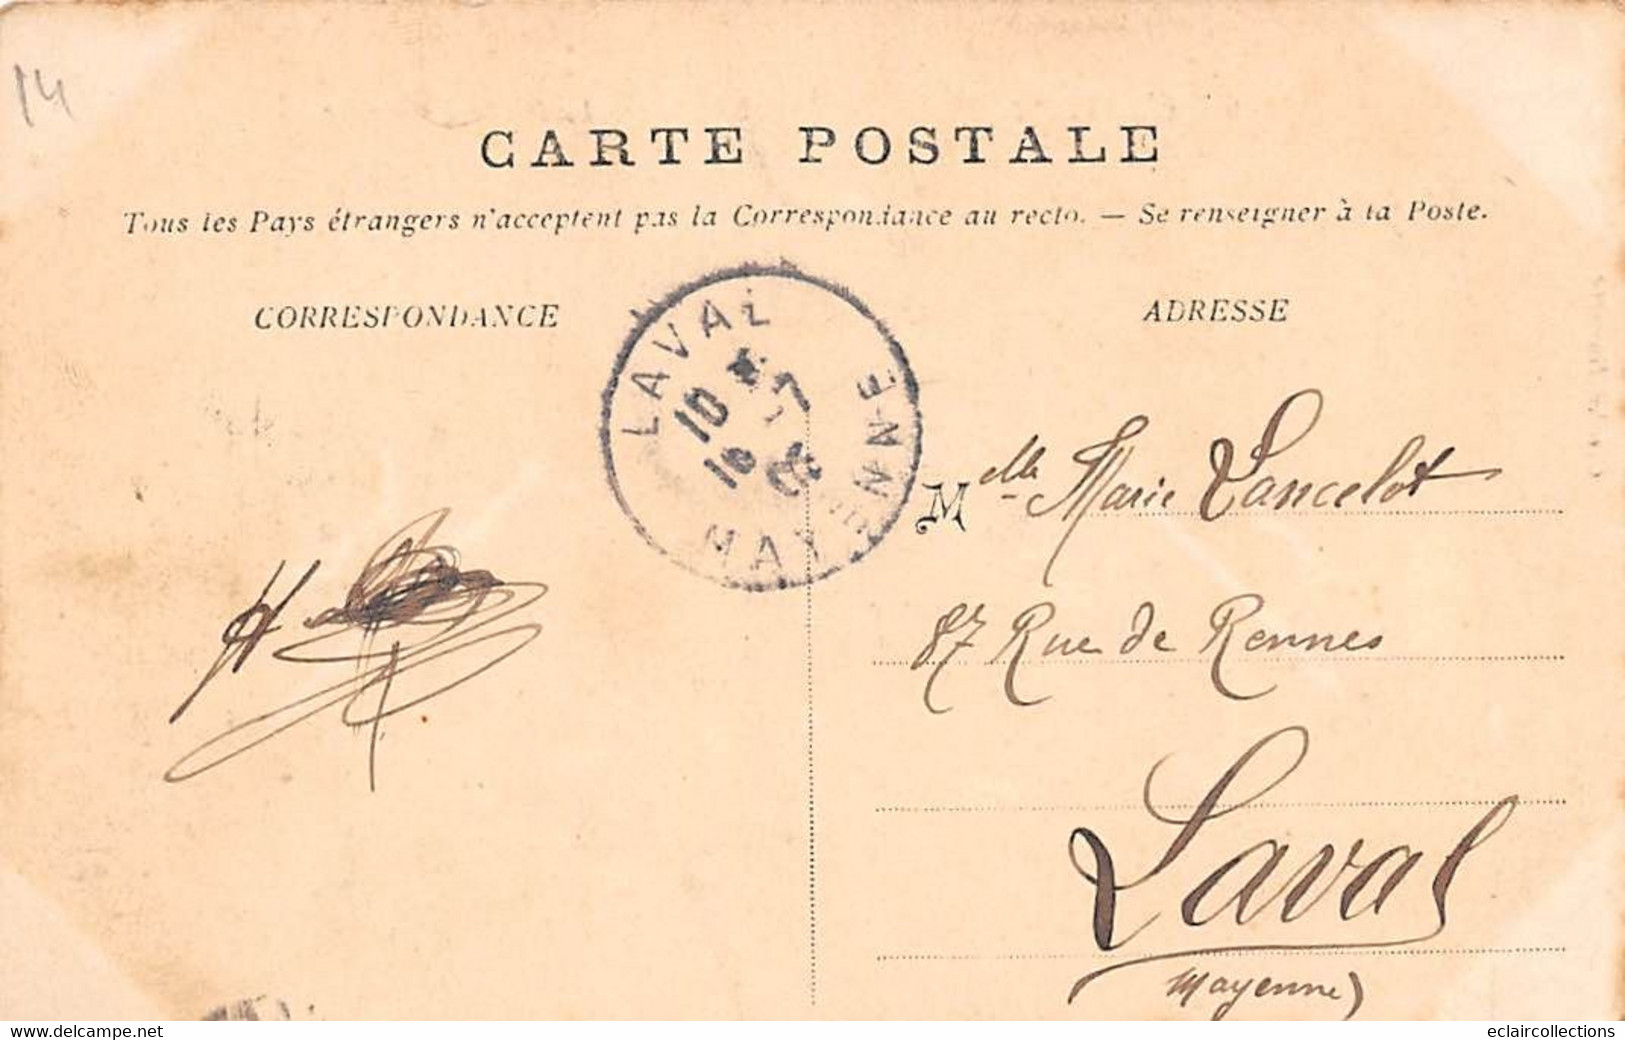 14
CARTE POSTALE
Tous les Pays étrangers n'acceptent pas la Correspondance au recto. — Se renseigner à la Poste.
CORRESPONDANCE
ADRESSE
LAVAL
10
16 -7
MAYENNE
Melle Marie Lancelot
87 Rue de Rennes
Laval
Mayenne)
www.delcampe.net
eclaircollections